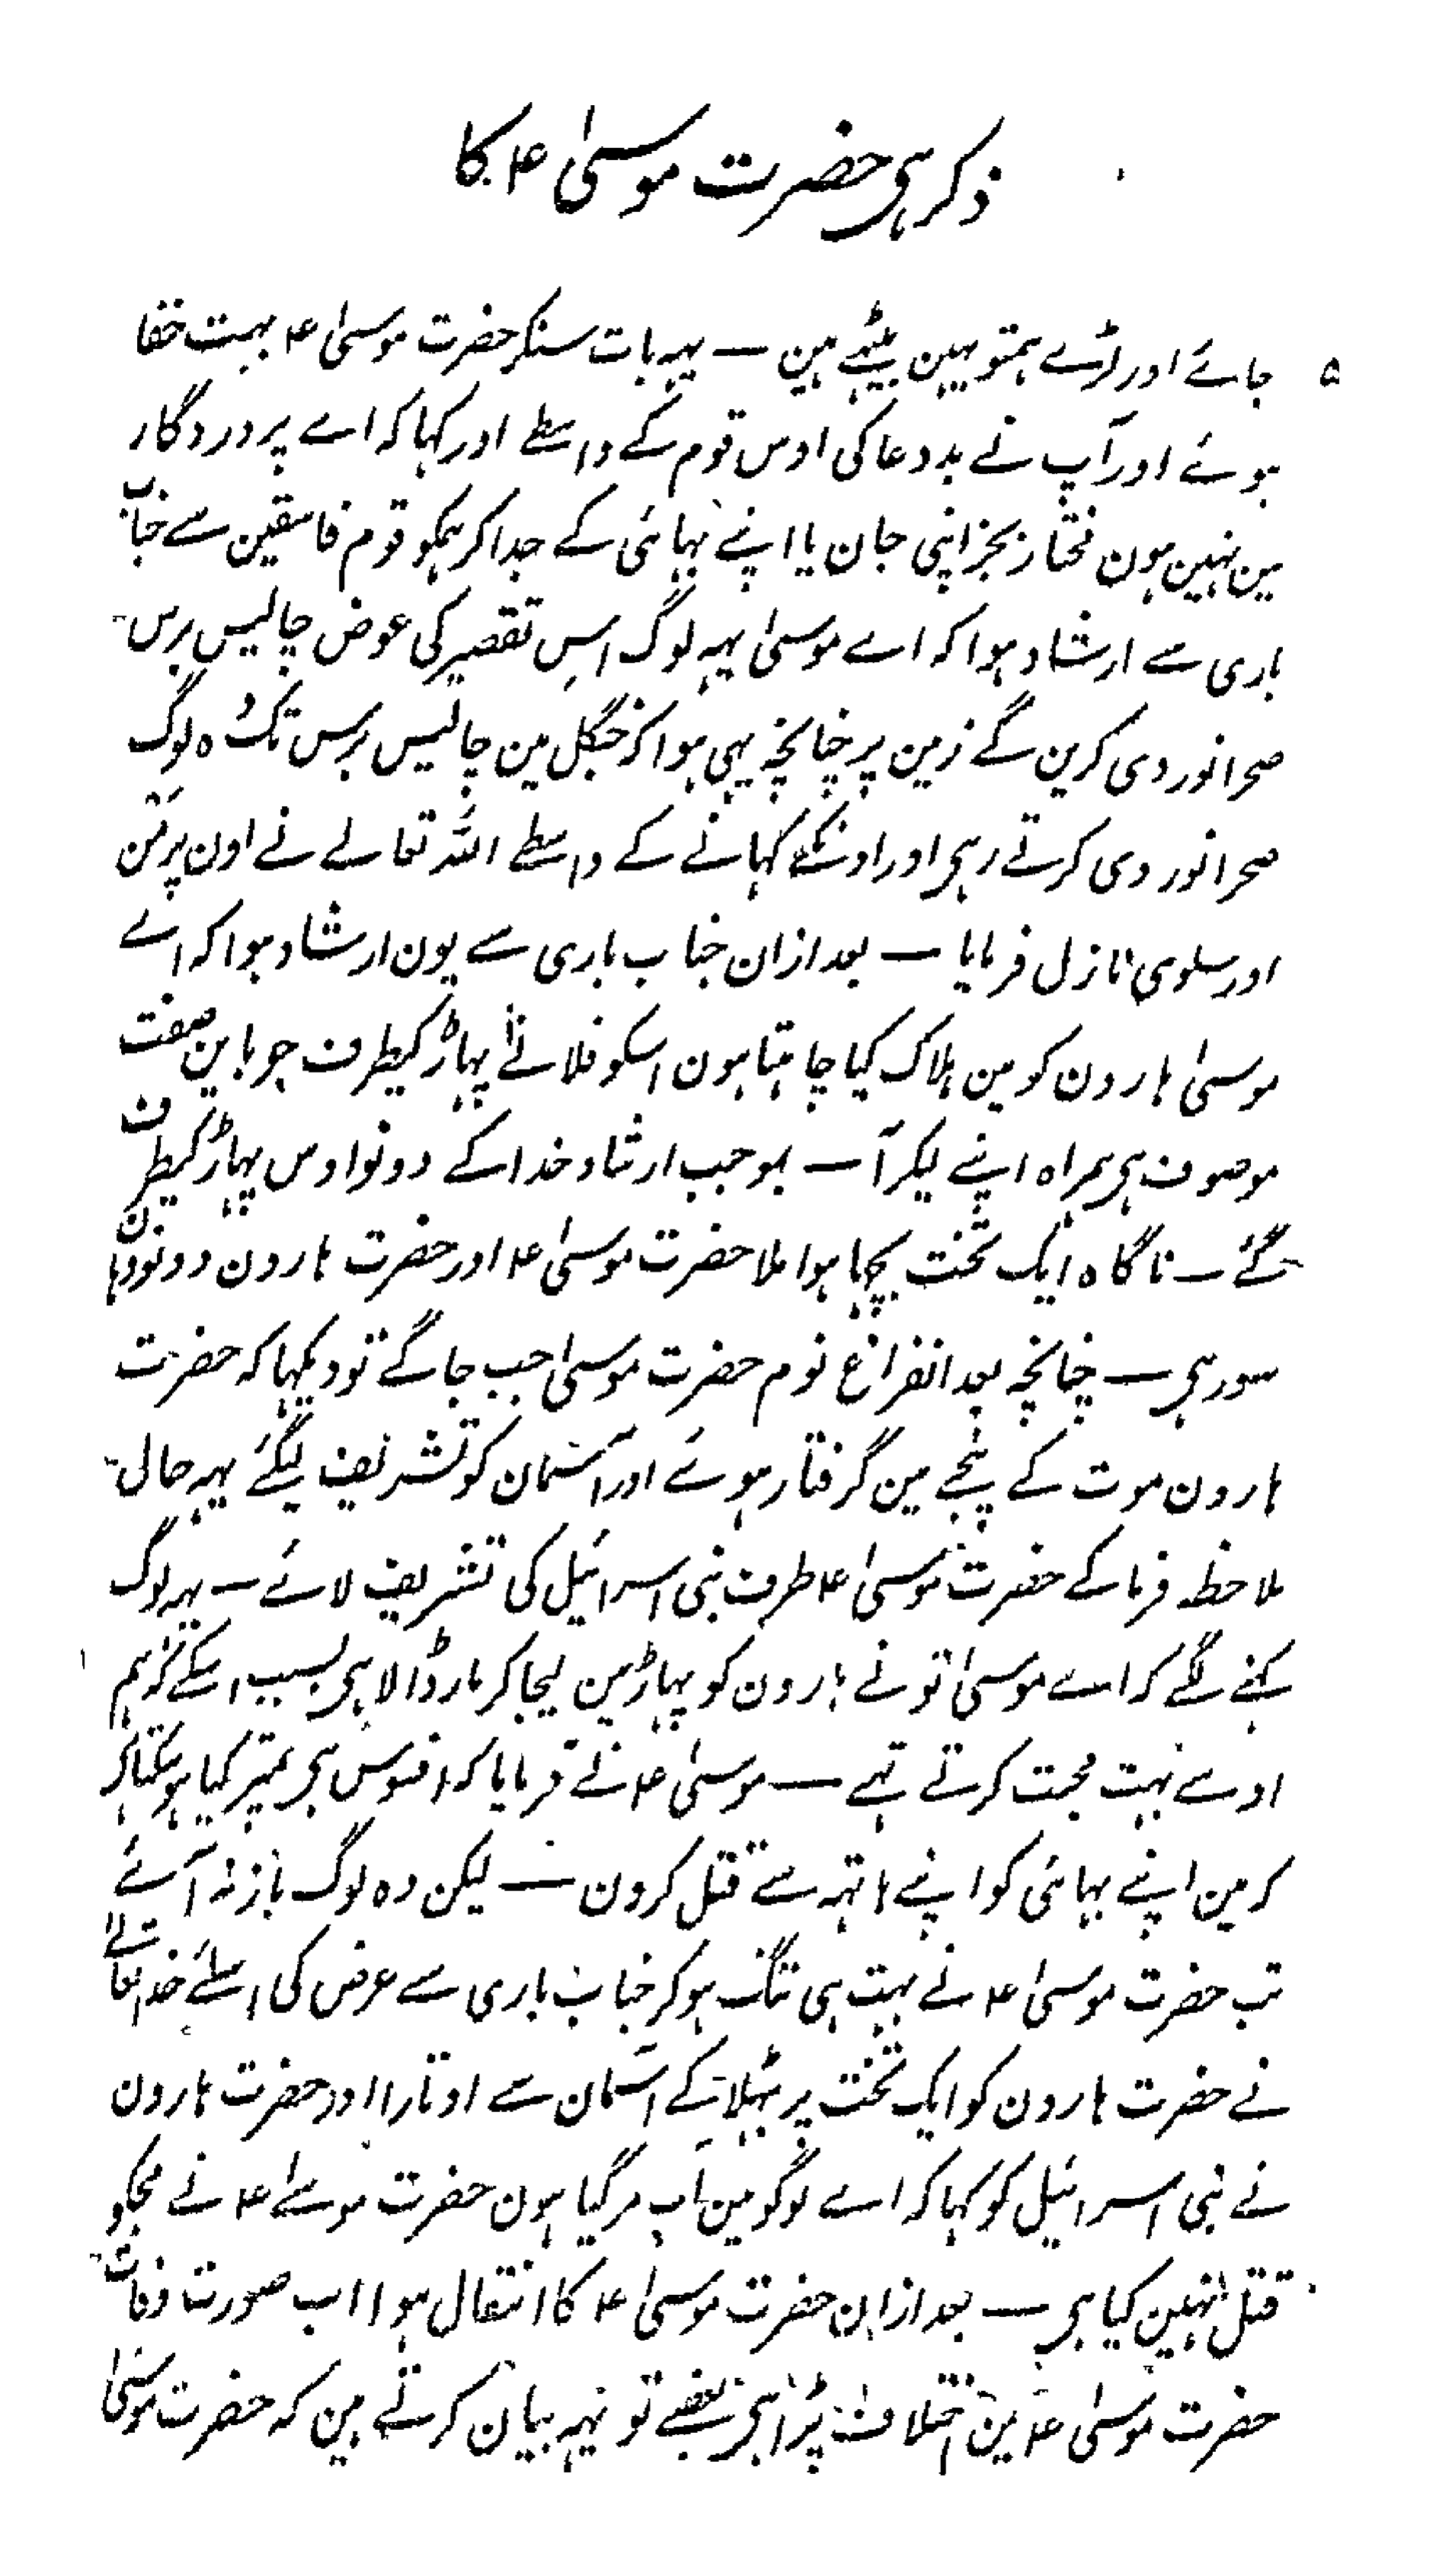 ذکر ہی حضرت موسیٰ ۴ کا
۵ جائے اور لڑے ہمتو یہین بیٹھے ہین — یہہ بات سنکر حضرت موسیٰ ۴ بہت خفا
ہوئے اور آپ نے بددعا کی اوس قوم کے واسطے اور کہا کہ اے پروردگار
مین نہین ہون مختار بجز اپنی جان یا اپنے بہائی کے جدا کر ہمکو قوم فاسقین سے جناب
باری سے ارشاد ہوا کہ اے موسیٰ یہہ لوگ اس تقصیر کی عوض چالیس برس
صحرا نوردی کرین گے زمین پر چنانچہ یہی ہوا کہ جنگل مین چالیس برس تک وہ لوگ
صحرا نوردی کرتے رہی اور اونکے کہانے کے واسطے اللہ تعالے نے اون پر من
اور سلوی نازل فرمایا — بعد ازان جناب باری سے یون ارشاد ہوا کہ اے
موسیٰ ہارون کو مین ہلاک کیا چاہتا ہون اسکو فلانے پہاڑ کیطرف جو باین صفت
موصوف ہی ہمراہ اپنے لیکر آ — بموجب ارشاد خدا کے دونو اوس پہاڑ کیطرف
گئے — ناگاہ ایک تخت بچہا ہوا ملا حضرت موسیٰ ۴ اور حضرت ہارون دونو وہان
سو رہی — چنانچہ بعد انفراغ نوم حضرت موسیٰ جب جاگے تو دیکہا کہ حضرت
ہارون موت کے پنجے مین گرفتار ہوئے اور آسمان کو تشریف لیگئے یہہ حال
ملاحظہ فرما کے حضرت موسیٰ ۴ طرف بنی اسرائیل کی تشریف لائے — یہہ لوگ
کہنے لگے کہ اے موسیٰ تو نے ہارون کو پہاڑ مین لیجا کر مار ڈالا ہی بسبب اسکے کہ ہم
اوسے بہت محبت کرتے تہے — موسیٰ ۴ نے فرمایا کہ افسوس ہی تمپر کیا ہو سکتا ہی
کہ مین اپنے بہائی کو اپنے ہاتہہ سے قتل کرون — لیکن وہ لوگ باز نہ آئے
تب حضرت موسیٰ ۴ نے بہت ہی تنگ ہو کر جناب باری سے عرض کی اسلئے خدا تعالے
نے حضرت ہارون کو ایک تخت پر بٹہلا کے آسمان سے اوتارا اور حضرت ہارون
نے بنی اسرائیل کو کہا کہ اے لوگو مین آپ مر گیا ہون حضرت موسے ۴ نے مجکو
قتل نہین کیا ہی — بعد ازان حضرت موسیٰ ۴ کا انتقال ہوا اب صورت وفات
حضرت موسیٰ ۴ مین اختلاف پڑا ہی بعضے تو یہہ بیان کرتے ہین کہ حضرت موسیٰ